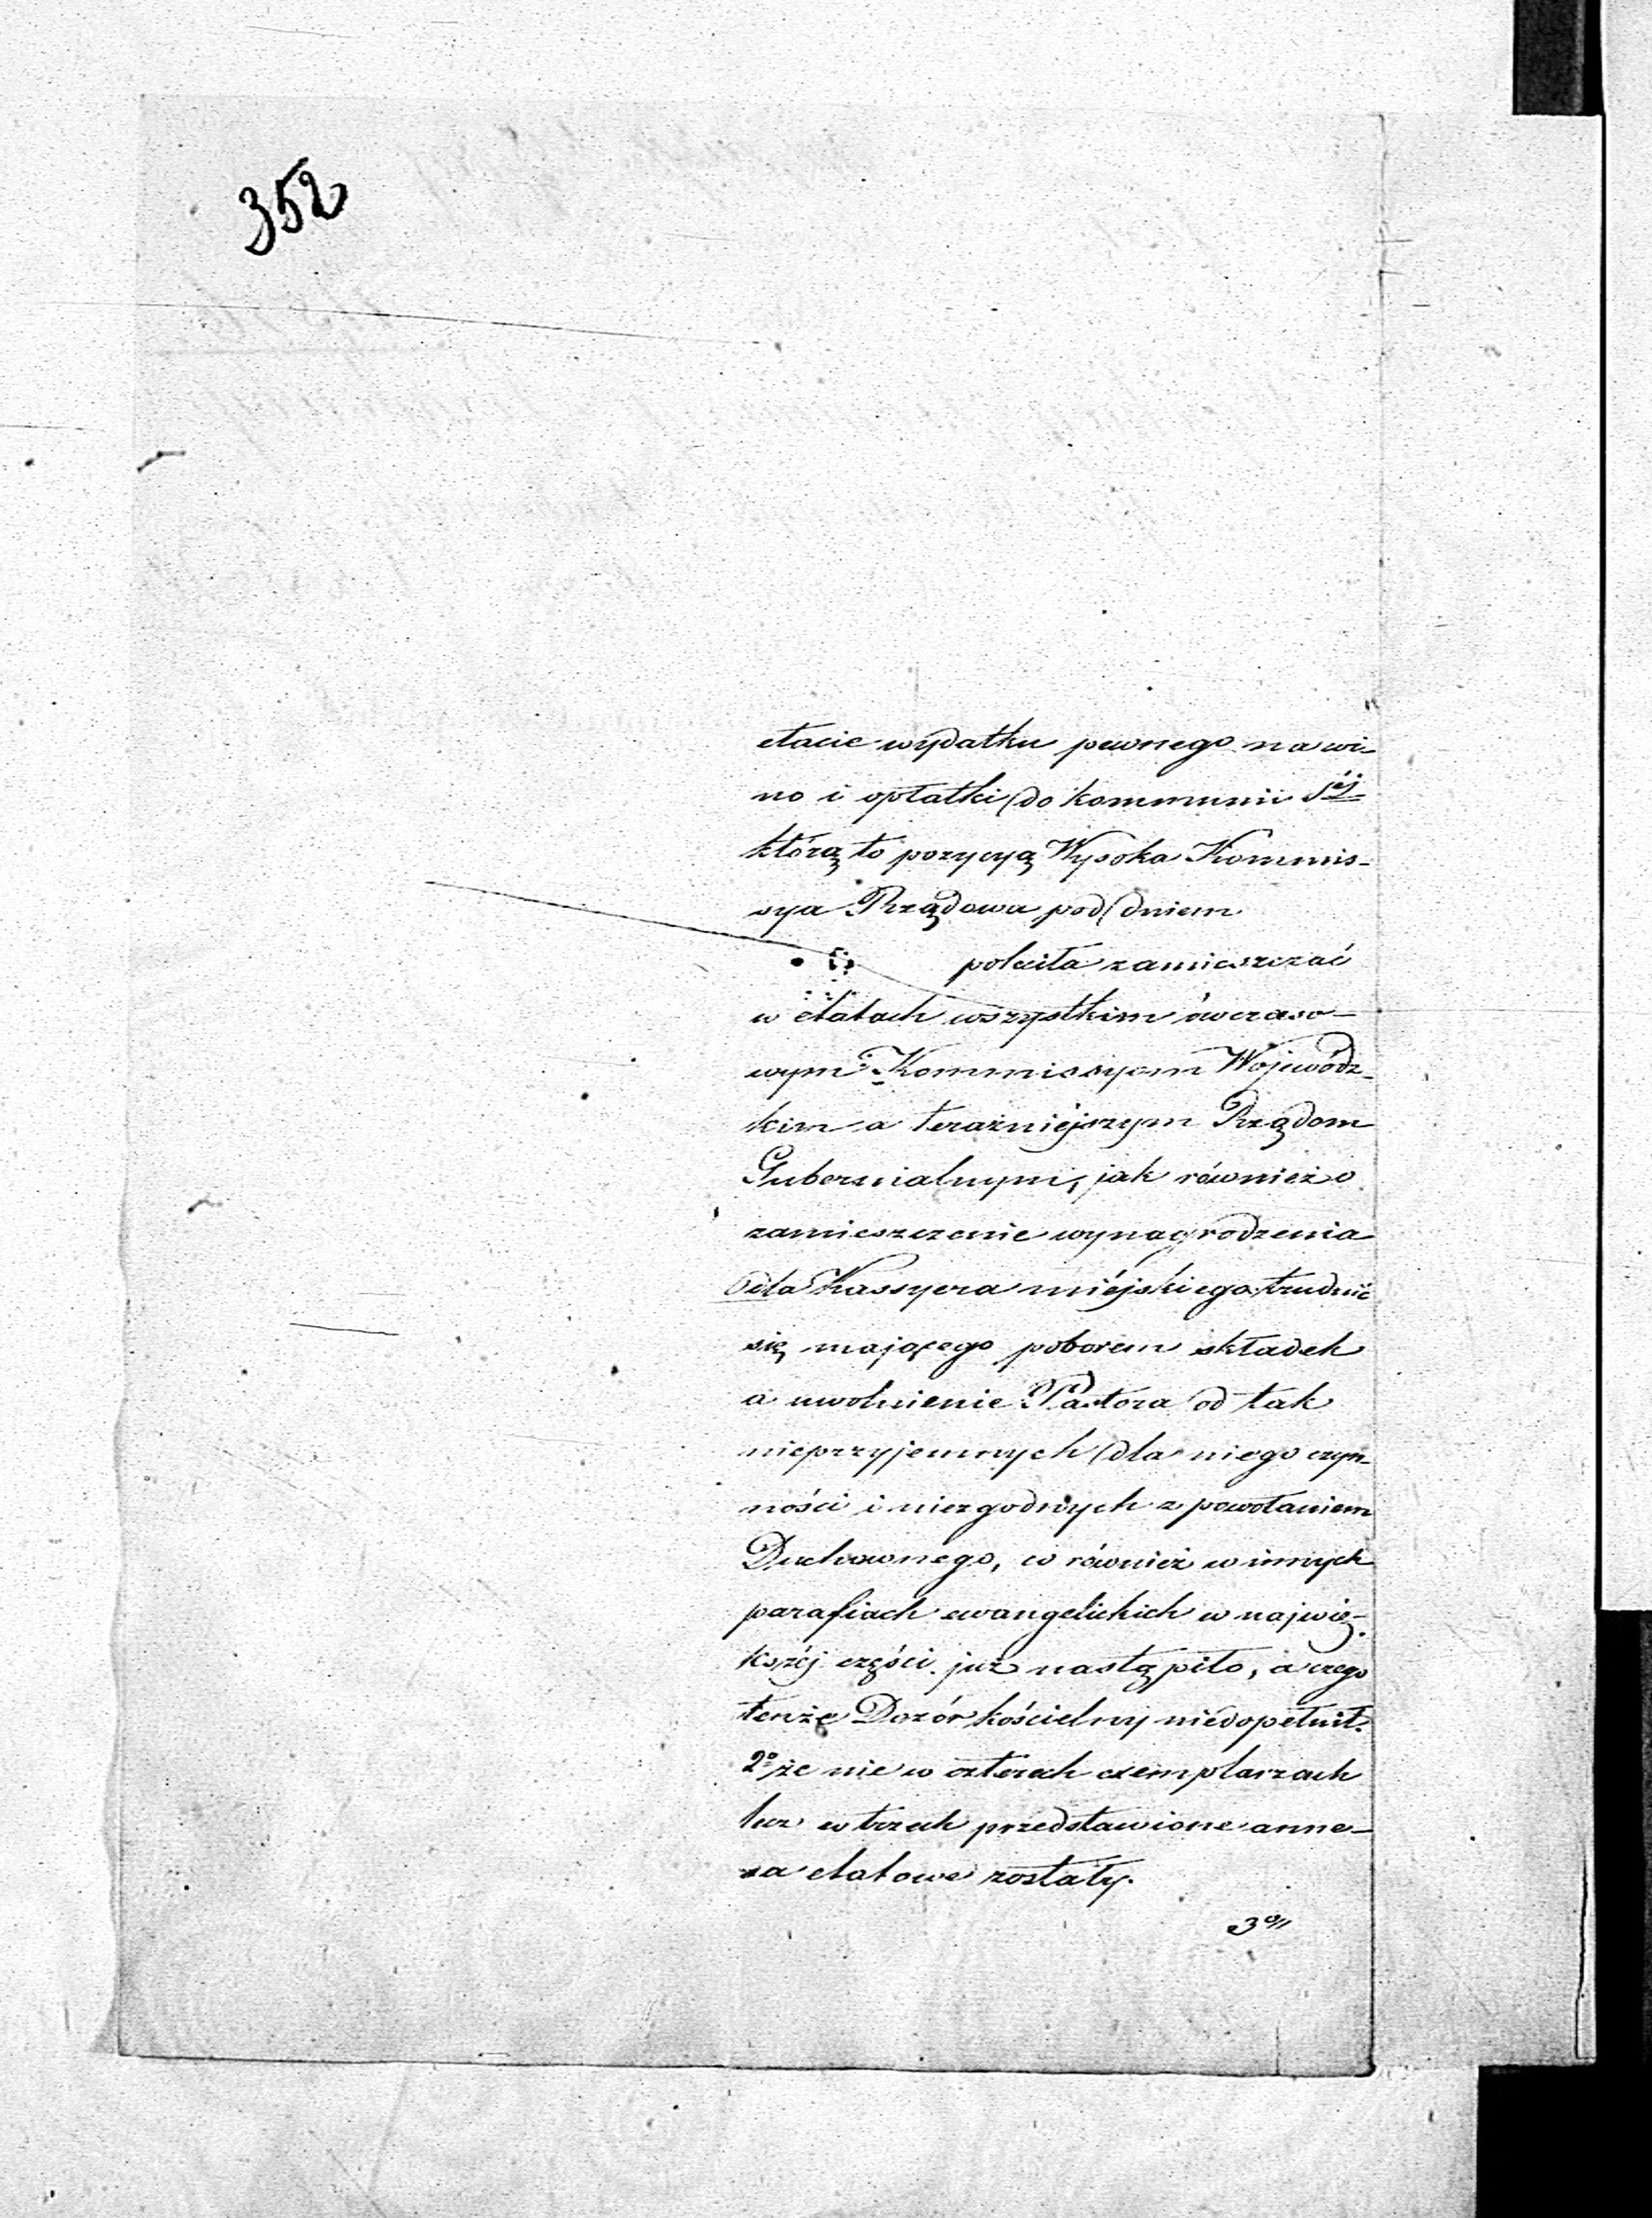 352
etacie wydatku pewnego na wi-
no i opłatki do kommunii Sej
którą to pozycyą Wysoka Kommis-
sya Rządowa pod dniem
poleciła zamieszczać
w etatach wszystkim ówczaso-
wym Kommissyom Wojewódz-
kim a teraźniéjszym Rządom
Gubernialnym, jak również o
zamieszczenie wynagrodzenia
dla Kassyera miéjskiego trudnić
się mającego poborem składek
a uwolnienie Pastora od tak
nieprzyjemnych dla niego czyn-
ności i niezgodnych z powołaniem
Duchownego, co również w innych
parafiach ewangelickich w najwię-
kszéj części już nastąpiło, a czego
tenże Dozór kościelny niedopełnił.
2º że nie w czterech exemplarzach
lecz w trzech przedstawione anne-
xa etatowe zostały.
3º